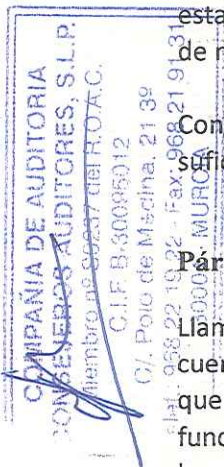 COMPAÑÍA DE AUDITORIA
CONSEJEROS AUDITORES, S.L.P.
Miembro del R.O.A.C.
C.I.F. B-30095012
C/. Polo de Medina, 21 3º
Fax. 968 21 91 31
MURCIA
esta
de
Con
sufic
Pár
Llam
cuen
que
func